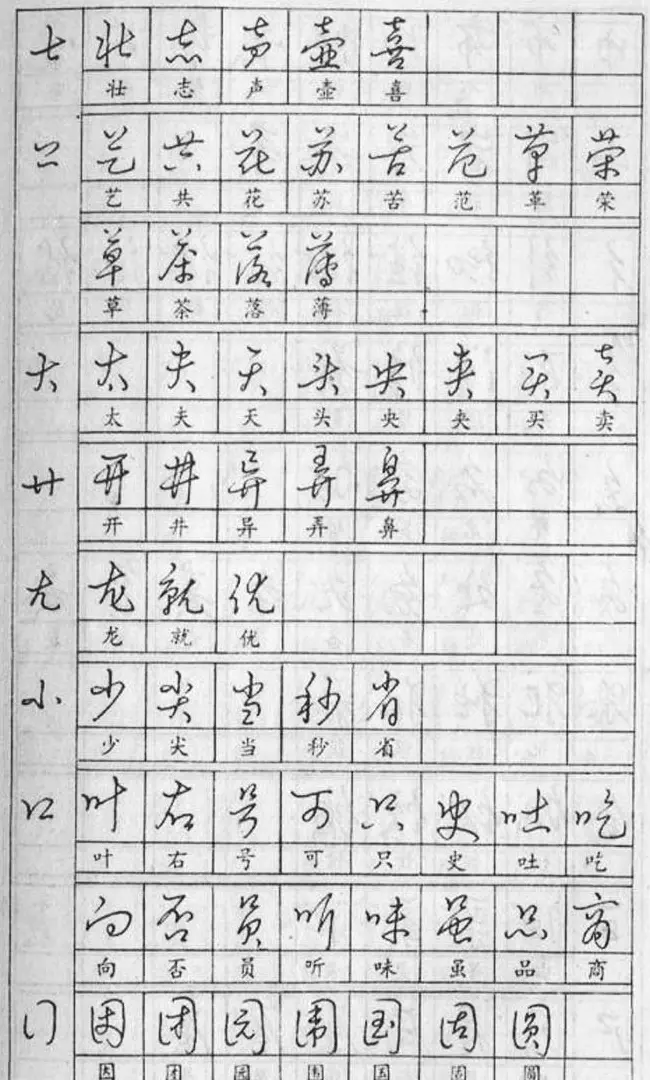 士 壮 志 声 壶 喜
壮 志 声 壶 喜
艹 艺 共 花 苏 苦 范 革 荣
艺 共 花 苏 苦 范 革 荣
草 茶 落 薄
草 茶 落 薄
大 太 夫 天 头 央 夹 买 卖
太 夫 天 头 央 夹 买 卖
廾 开 井 异 弄 鼻
开 井 异 弄 鼻
尤 龙 就 优
龙 就 优
小 少 尖 当 秒 省
少 尖 当 秒 省
口 叶 右 号 可 只 史 吐 吃
叶 右 号 可 只 史 吐 吃
向 否 员 听 味 虽 品 商
向 否 员 听 味 虽 品 商
囗 因 团 园 围 国 固 圆
因 团 园 围 国 固 圆